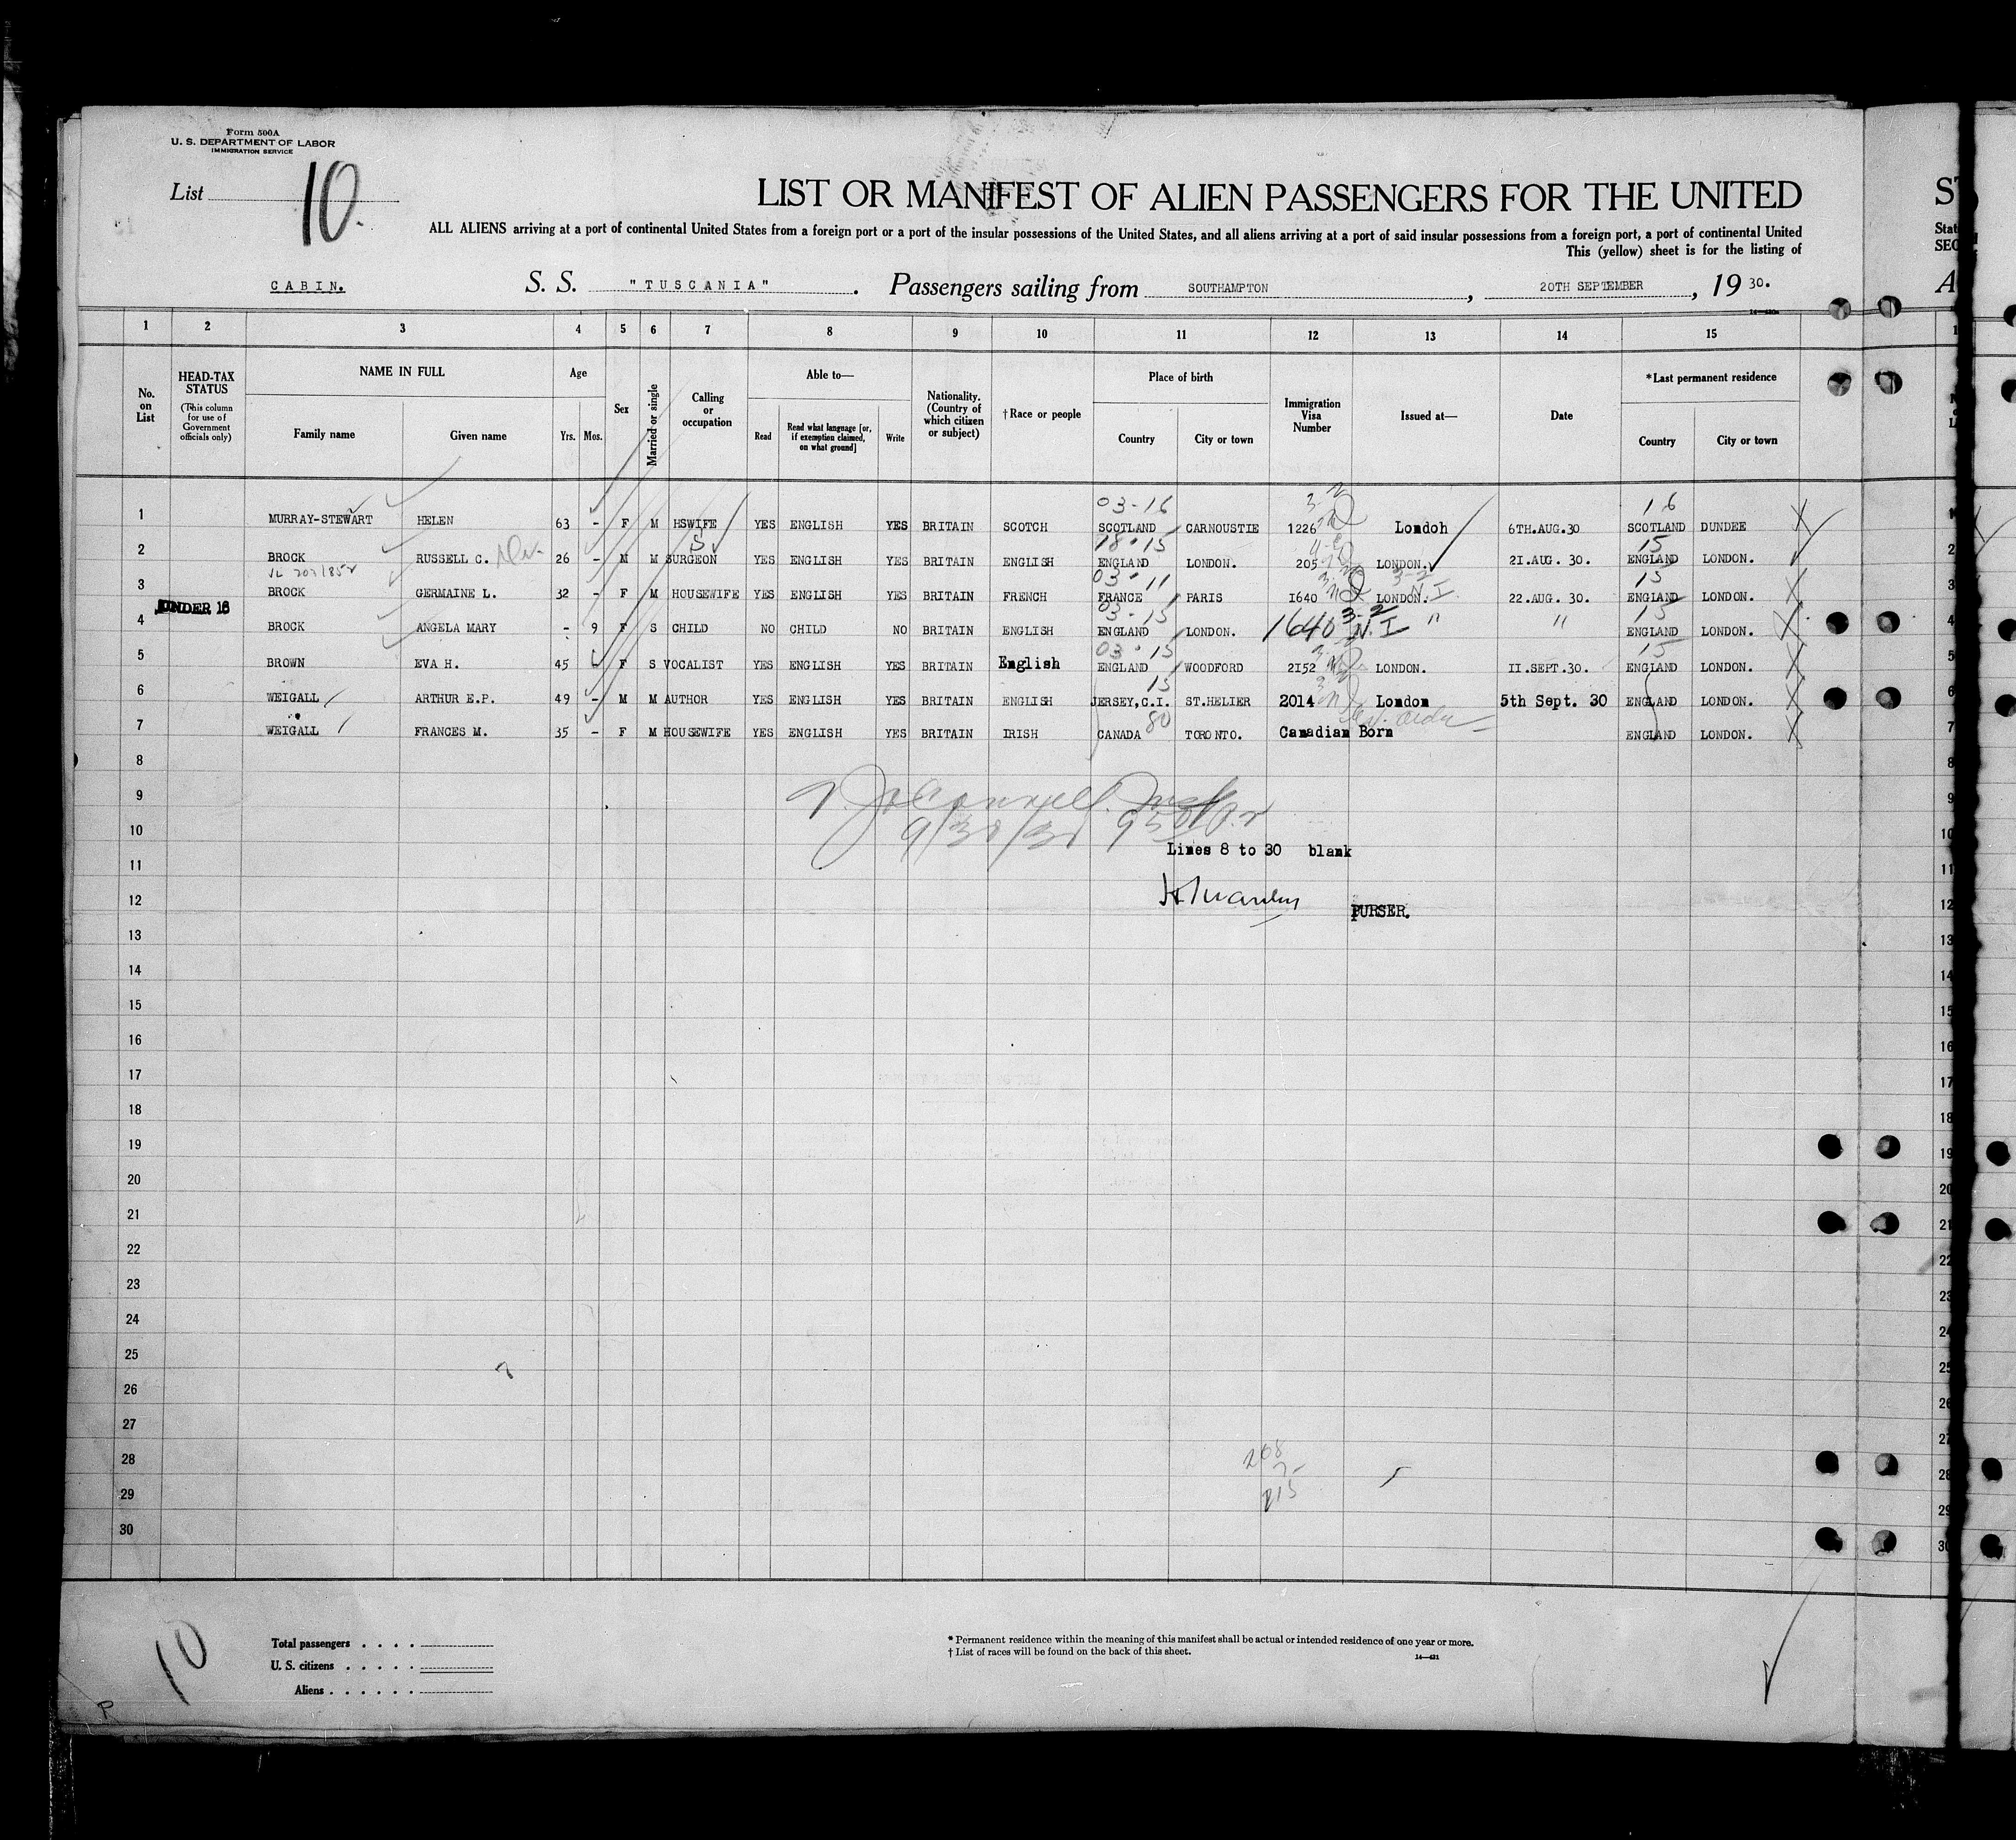 Form 500A
U. S. DEPARTMENT OF LABOR
IMMIGRATION SERVICE
List 10.
LIST OR MANIFEST OF ALIEN PASSENGERS FOR THE UNITED
ALL ALIENS arriving at a port of continental United States from a foreign port or a port of the insular possessions of the United States, and all aliens arriving at a port of said insular possessions from a foreign port, a port of continental United
This (yellow) sheet is for the listing of
CABIN. S. S. "TUSCANIA". Passengers sailing from SOUTHAMPTON, 20TH SEPTEMBER, 19 30.
1 2 3 4 5 6 7 8 9 10 11 12 13 14 15
No. on List
HEAD-TAX STATUS
(This column for use of Government officials only)
NAME IN FULL
Family name Given name
Age
Yrs. Mos.
Sex
Married or single
Calling or occupation
Able to—
Read
Read what language [or, if exemption claimed, on what ground]
Write
Nationality. (Country of which citizen or subject)
† Race or people
Place of birth
Country City or town
Immigration Visa Number
Issued at—
Date
*Last permanent residence
Country City or town
03-16 16
1 MURRAY-STEWART HELEN 63 - F M HSWIFE YES ENGLISH YES BRITAIN SCOTCH SCOTLAND CARNOUSTIE 1226 London 6TH.AUG.30 SCOTLAND DUNDEE
18-15 15
2 BROCK RUSSELL C. 26 - M M SURGEON YES ENGLISH YES BRITAIN ENGLISH ENGLAND LONDON. 205 LONDON. 21.AUG. 30. ENGLAND LONDON.
03-11 15
3 BROCK GERMAINE L. 32 - F M HOUSEWIFE YES ENGLISH YES BRITAIN FRENCH FRANCE PARIS 1640 LONDON. N.I. 22.AUG. 30. ENGLAND LONDON.
UNDER 16
03-15 3-2 15
4 BROCK ANGELA MARY - 9 F S CHILD NO CHILD NO BRITAIN ENGLISH ENGLAND LONDON. 1640 N.I " " ENGLAND LONDON.
03-15 15
5 BROWN EVA H. 45 F S VOCALIST YES ENGLISH YES BRITAIN English ENGLAND WOODFORD 2152 LONDON. 11.SEPT.30. ENGLAND LONDON.
15
6 WEIGALL ARTHUR E.P. 49 - M M AUTHOR YES ENGLISH YES BRITAIN ENGLISH JERSEY,C.I. ST.HELIER 2014 London 5th Sept. 30 ENGLAND LONDON.
80
7 WEIGALL FRANCES M. 35 - F M HOUSEWIFE YES ENGLISH YES BRITAIN IRISH CANADA TORONTO. Canadian Born ENGLAND LONDON.
8
9
10
9/30/30
Lines 8 to 30 blank
11
12
PURSER.
13
14
15
16
17
18
19
20
21
22
23
24
25
26
27
28
29
30
10
Total passengers
U. S. citizens
Aliens
* Permanent residence within the meaning of this manifest shall be actual or intended residence of one year or more.
† List of races will be found on the back of this sheet.
14—421